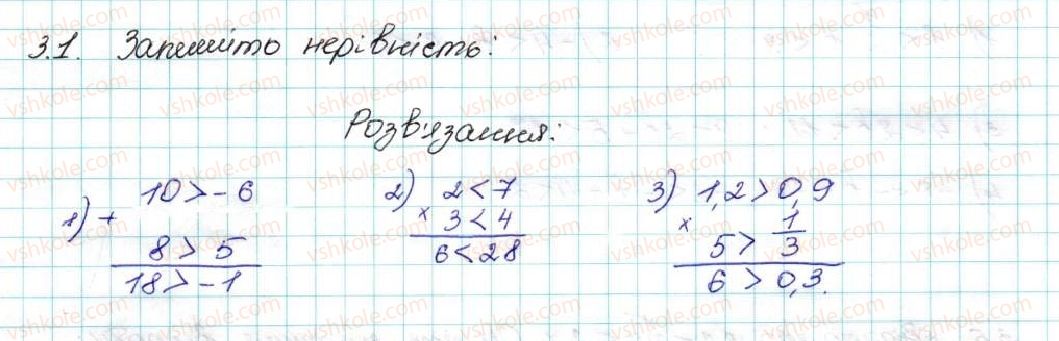 3.1. Запишіть нерівність:
Розв'язання:
1) + 10 > -6
8 > 5
18 > -1
2) × 2 < 7
3 < 4
6 < 28
3) × 1,2 > 0,9
5 > 1/3
6 > 0,3.
vshkole.com